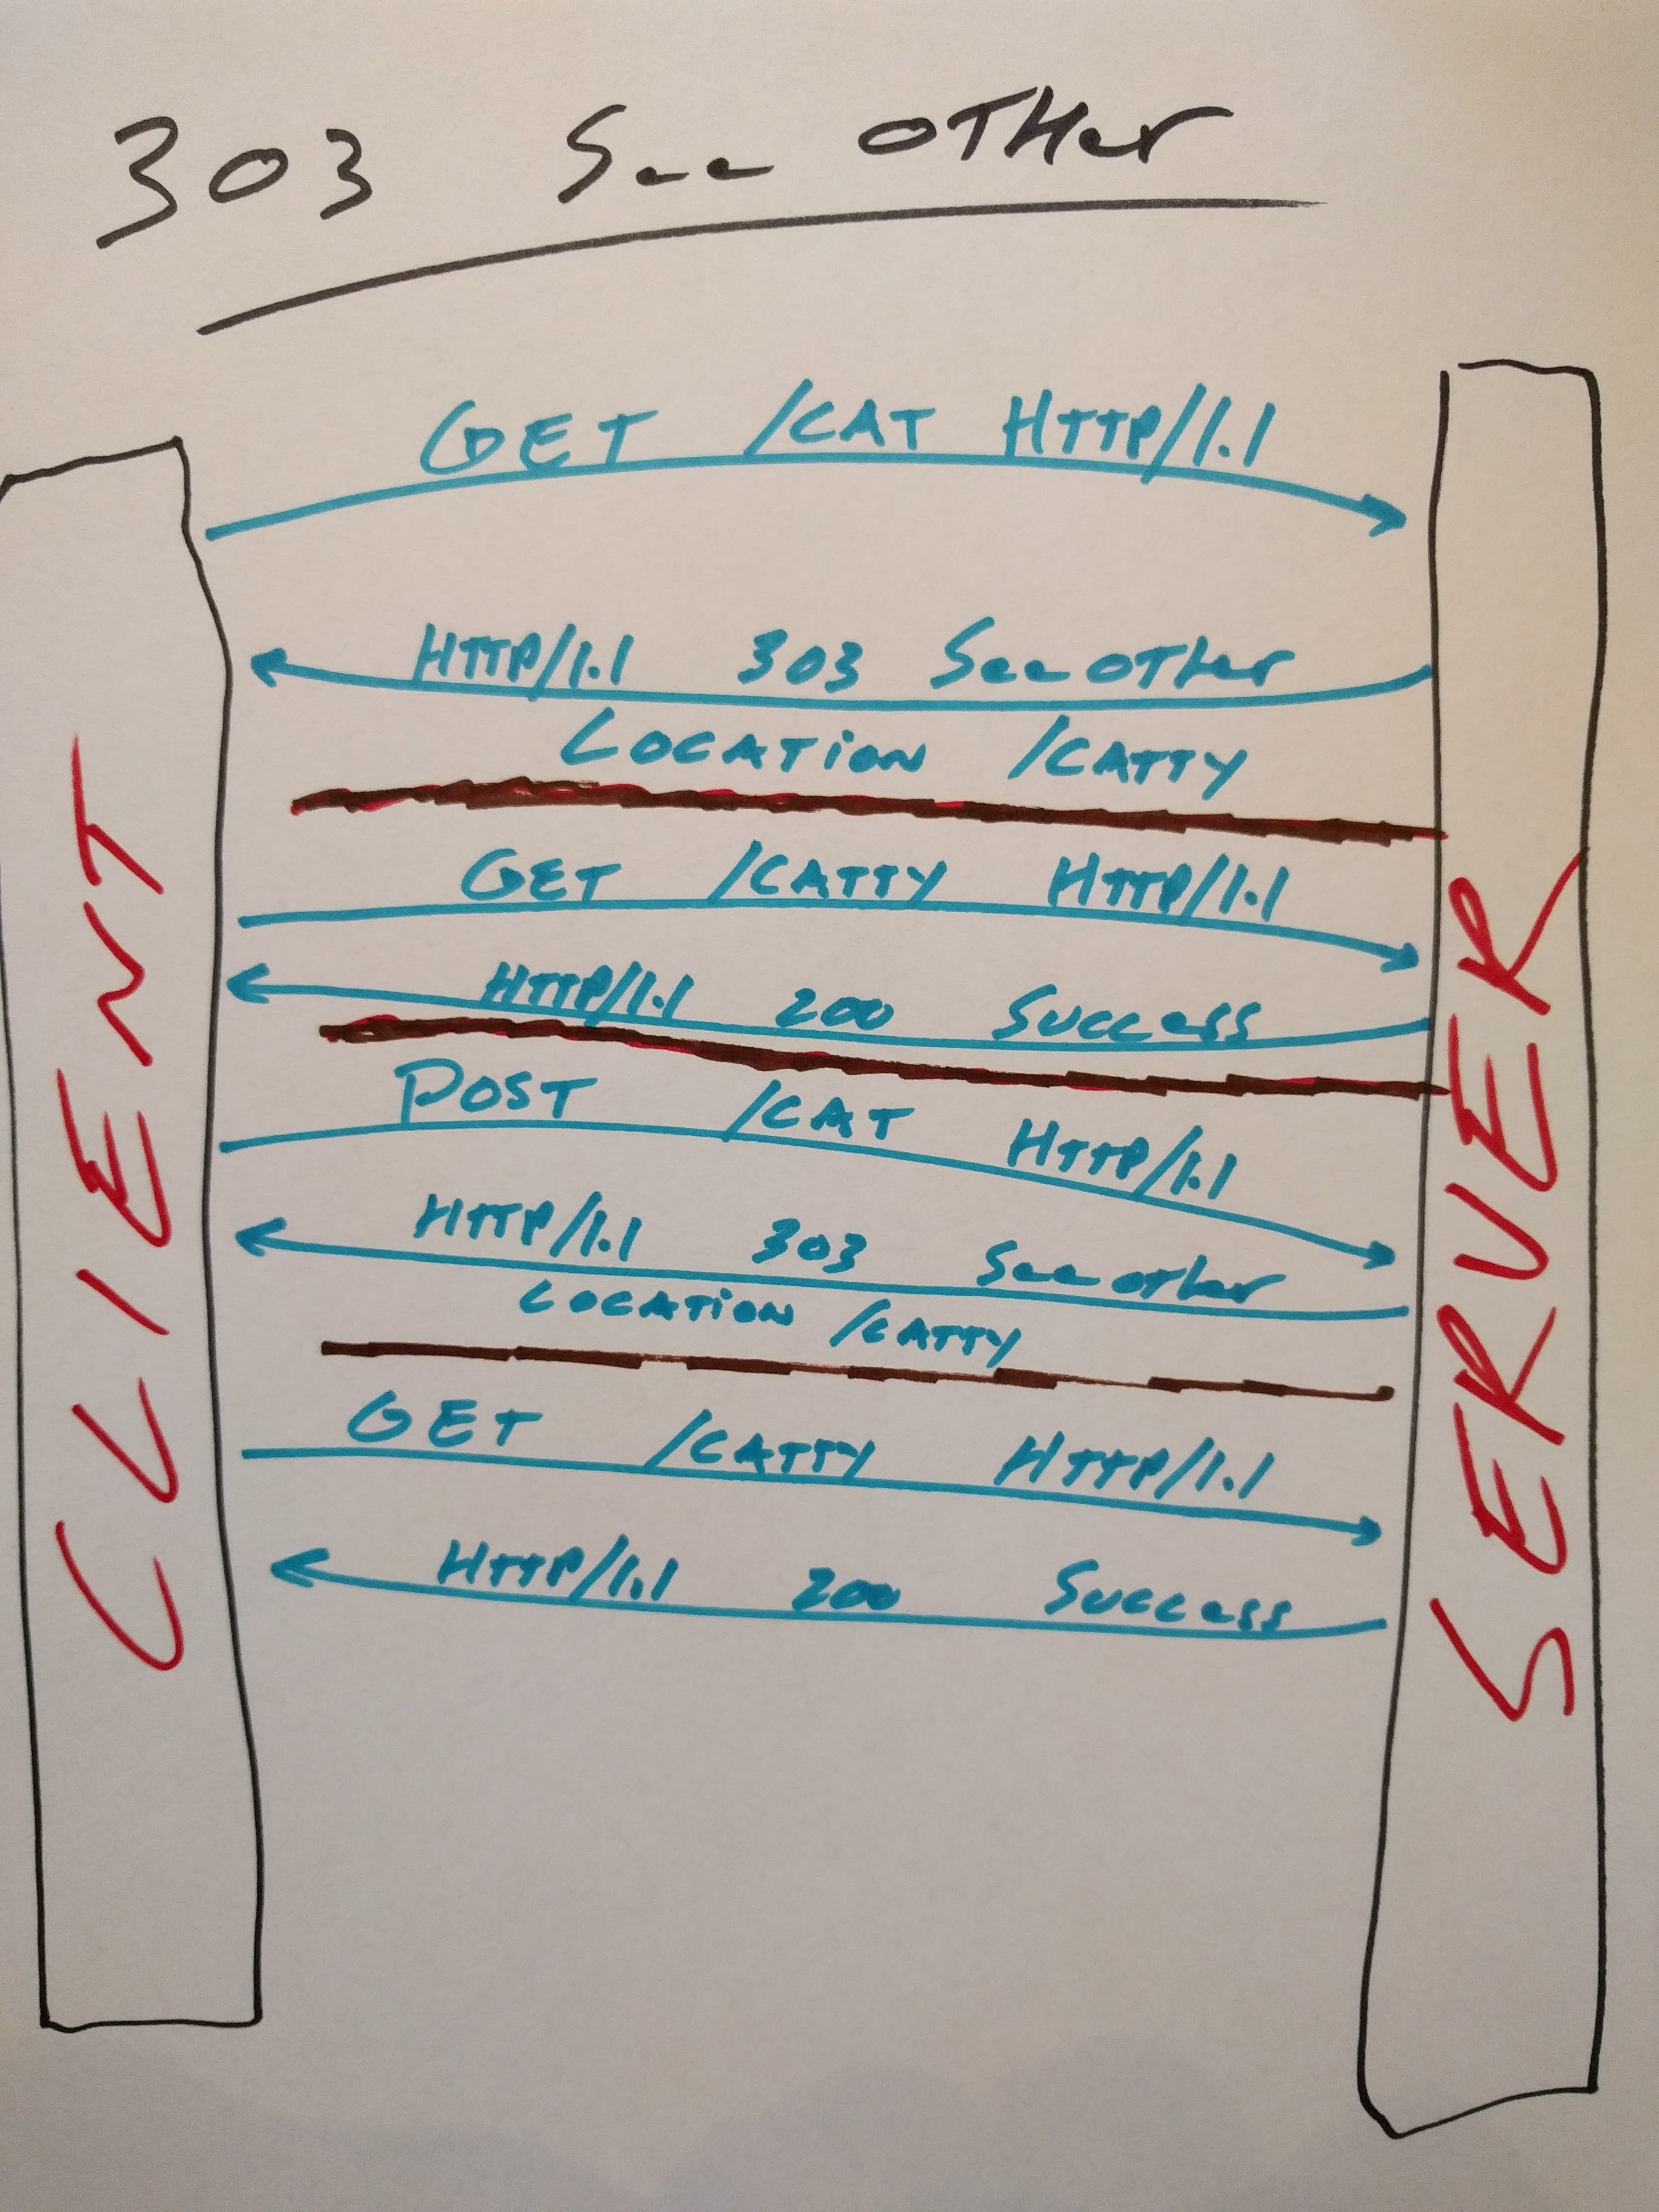 303 See OTHer
GET /CAT HTTP/1.1
HTTP/1.1 303 See OTHer
LOCATiON /CATTY
GET /CATTY HTTP/1.1
HTTP/1.1 200 Success
POST /CAT HTTP/1.1
HTTP/1.1 303 See other
LOCATiON /CATTY
GET /CATTY HTTP/1.1
HTTP/1.1 200 Success
CLIENT
SERVER